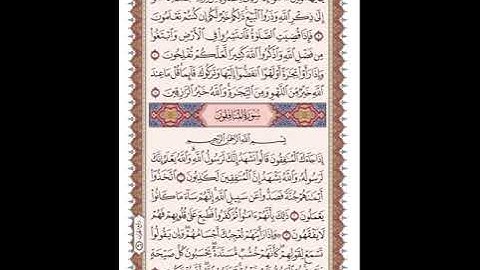 إِلَىٰ ذِكْرِ اللَّهِ وَذَرُوا الْبَيْعَ ذَٰلِكُمْ خَيْرٌ لَّكُمْ إِن كُنتُمْ تَعْلَمُونَ
فَإِذَا قُضِيَتِ الصَّلَوٰةُ فَانتَشِرُوا فِي الْأَرْضِ وَابْتَغُوا
مِن فَضْلِ اللَّهِ وَاذْكُرُوا اللَّهَ كَثِيرًا لَّعَلَّكُمْ تُفْلِحُونَ
وَإِذَا رَأَوْا تِجَٰرَةً أَوْ لَهْوًا انفَضُّوا إِلَيْهَا وَتَرَكُوكَ قَائِمًا قُلْ مَا عِندَ
اللَّهِ خَيْرٌ مِّنَ اللَّهْوِ وَمِنَ التِّجَٰرَةِ وَاللَّهُ خَيْرُ الرَّٰزِقِينَ
سُورَةُ الْمُنَافِقُونَ
بِسْمِ اللَّهِ الرَّحْمَٰنِ الرَّحِيمِ
إِذَا جَاءَكَ الْمُنَٰفِقُونَ قَالُوا نَشْهَدُ إِنَّكَ لَرَسُولُ اللَّهِ وَاللَّهُ يَعْلَمُ إِنَّكَ
لَرَسُولُهُ وَاللَّهُ يَشْهَدُ إِنَّ الْمُنَٰفِقِينَ لَكَٰذِبُونَ اتَّخَذُوا
أَيْمَٰنَهُمْ جُنَّةً فَصَدُّوا عَن سَبِيلِ اللَّهِ إِنَّهُمْ سَاءَ مَا كَانُوا
يَعْمَلُونَ ذَٰلِكَ بِأَنَّهُمْ ءَامَنُوا ثُمَّ كَفَرُوا فَطُبِعَ عَلَىٰ قُلُوبِهِمْ فَهُمْ
لَا يَفْقَهُونَ وَإِذَا رَأَيْتَهُمْ تُعْجِبُكَ أَجْسَامُهُمْ وَإِن يَقُولُوا
تَسْمَعْ لِقَوْلِهِمْ كَأَنَّهُمْ خُشُبٌ مُّسَنَّدَةٌ يَحْسَبُونَ كُلَّ صَيْحَةٍ